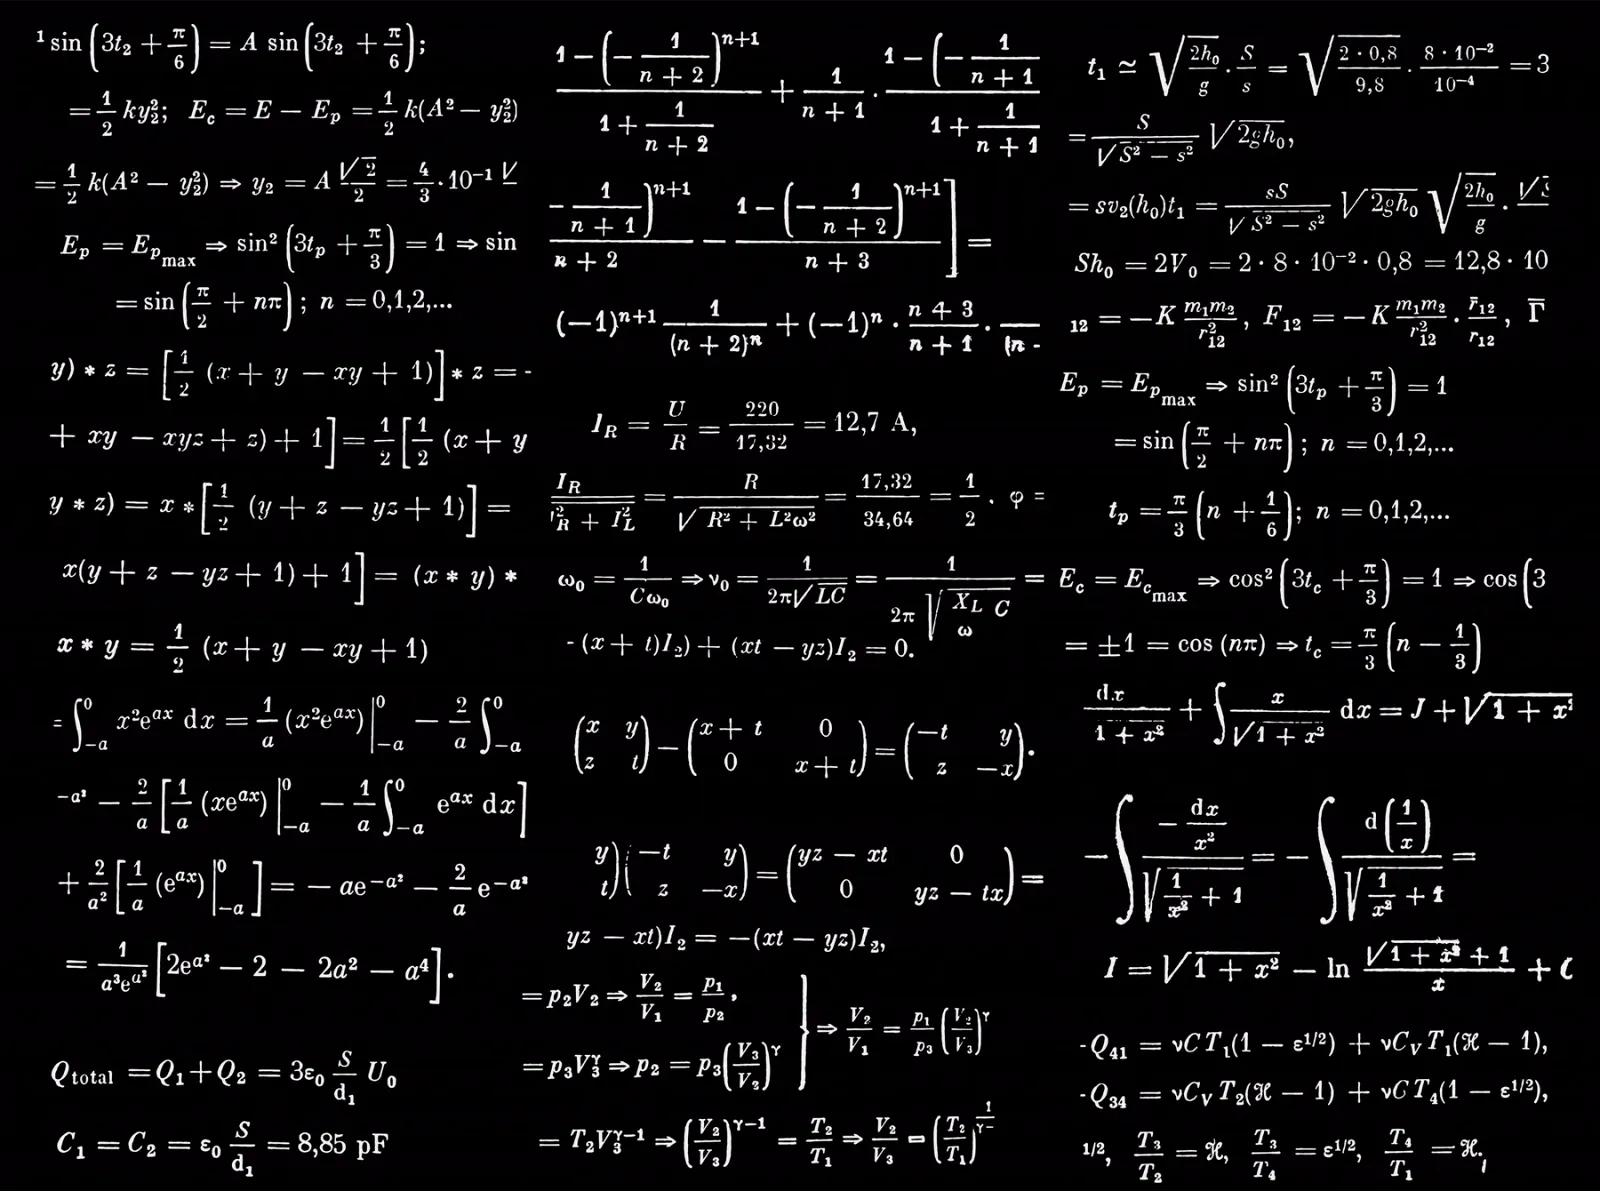 ¹ sin (3t₂ + π/6) = A sin (3t₂ + π/6);
= 1/2 ky₂²; E_c = E − E_p = 1/2 k(A² − y₂²)
= 1/2 k(A² − y₂²) ⇒ y₂ = A √2/2 = 4/3 · 10⁻¹ √
E_p = E_p max ⇒ sin² (3t_p + π/3) = 1 ⇒ sin
= sin (π/2 + nπ) ; n = 0,1,2,...
y) * z = [1/2 (x + y − xy + 1)] * z = -
+ xy − xyz + z) + 1] = 1/2 [1/2 (x + y
y * z) = x * [1/2 (y + z − yz + 1)] =
x(y + z − yz + 1) + 1] = (x * y) *
x * y = 1/2 (x + y − xy + 1)
= ∫₋ₐ⁰ x²eᵃˣ dx = 1/a (x²eᵃˣ)|₋ₐ⁰ − 2/a ∫₋ₐ⁰
-a² − 2/a [1/a (xeᵃˣ)|₋ₐ⁰ − 1/a ∫₋ₐ⁰ eᵃˣ dx]
+ 2/a² [1/a (eᵃˣ)|₋ₐ⁰] = − ae^−a² − 2/a e^−a²
= 1/(a³e^a²) [2e^a² − 2 − 2a² − a⁴].
Q_total = Q₁ + Q₂ = 3ε₀ S/d₁ U₀
C₁ = C₂ = ε₀ S/d₁ = 8,85 pF
(1 − (− 1/(n + 2))ⁿ⁺¹)/(1 + 1/(n + 2)) + 1/(n + 1) · (1 − (− 1/(n + 1)/(1 + 1/(n + 1)
− 1/(n + 1))ⁿ⁺¹/(n + 2) − (1 − (− 1/(n + 2))ⁿ⁺¹)/(n + 3)] =
(−1)ⁿ⁺¹ 1/(n + 2)ⁿ + (−1)ⁿ · (n + 3)/(n + 1) · (n -
I_R = U/R = 220/17,32 = 12,7 A,
I_R/(I_R² + I_L²) = R/√(R² + L²ω²) = 17,32/34,64 = 1/2 . φ =
ω₀ = 1/(Cω₀) ⇒ ν₀ = 1/(2π√LC) = 1/(2π √(X_L/ω C)) =
- (x + t)I₂) + (xt − yz)I₂ = 0.
(x y; z t) − (x + t 0; 0 x + t) = (−t y; z −x).
y; t)(−t y; z −x) = (yz − xt 0; 0 yz − tx) =
yz − xt)I₂ = −(xt − yz)I₂,
= p₂V₂ ⇒ V₂/V₁ = p₁/p₂,
= p₃V₃^γ ⇒ p₂ = p₃(V₃/V₂)^γ } ⇒ V₂/V₁ = p₁/p₃ (V₂/V₃)^γ
= T₂V₃^γ−1 ⇒ (V₂/V₃)^γ−1 = T₂/T₁ ⇒ V₂/V₃ = (T₂/T₁)^1/γ−
t₁ ≃ √(2h₀/g) · S/s = √(2 · 0,8/9,8) · 8 · 10⁻²/10⁻⁴ = 3
= S/√(S² − s²) √(2gh₀),
= sv₂(h₀)t₁ = sS/√(S² − s²) √(2gh₀) √(2h₀/g) ·
Sh₀ = 2V₀ = 2 · 8 · 10⁻² · 0,8 = 12,8 · 10
₁₂ = −K m₁m₂/r₁₂², F₁₂ = −K m₁m₂/r₁₂² · r̄₁₂/r₁₂, Γ̄
E_p = E_p max ⇒ sin² (3t_p + π/3) = 1
= sin (π/2 + nπ) ; n = 0,1,2,...
t_p = π/3 (n + 1/6); n = 0,1,2,...
E_c = E_c max ⇒ cos² (3t_c + π/3) = 1 ⇒ cos (3
= ±1 = cos (nπ) ⇒ t_c = π/3 (n − 1/3)
dx/(1 + x²) + ∫ x/√(1 + x²) dx = J + √(1 + x²
− ∫ (− dx/x²)/√(1/x² + 1) = − ∫ d(1/x)/√(1/x² + 1) =
I = √(1 + x²) − ln (√(1 + x²) + 1)/x + C
-Q₄₁ = νCT₁(1 − ε^1/2) + νC_V T₁(ℋ − 1),
-Q₃₄ = νC_V T₂(ℋ − 1) + νCT₄(1 − ε^1/2),
1/2, T₃/T₂ = ℋ, T₃/T₄ = ε^1/2, T₄/T₁ = ℋ.